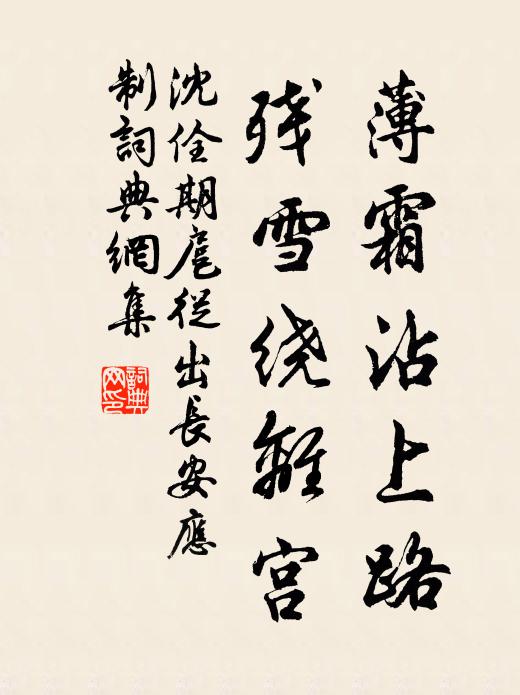 薄霜沾上路
残雪绕離宫
沈佺期扈從出長安應
制詞典網集
詞典网印